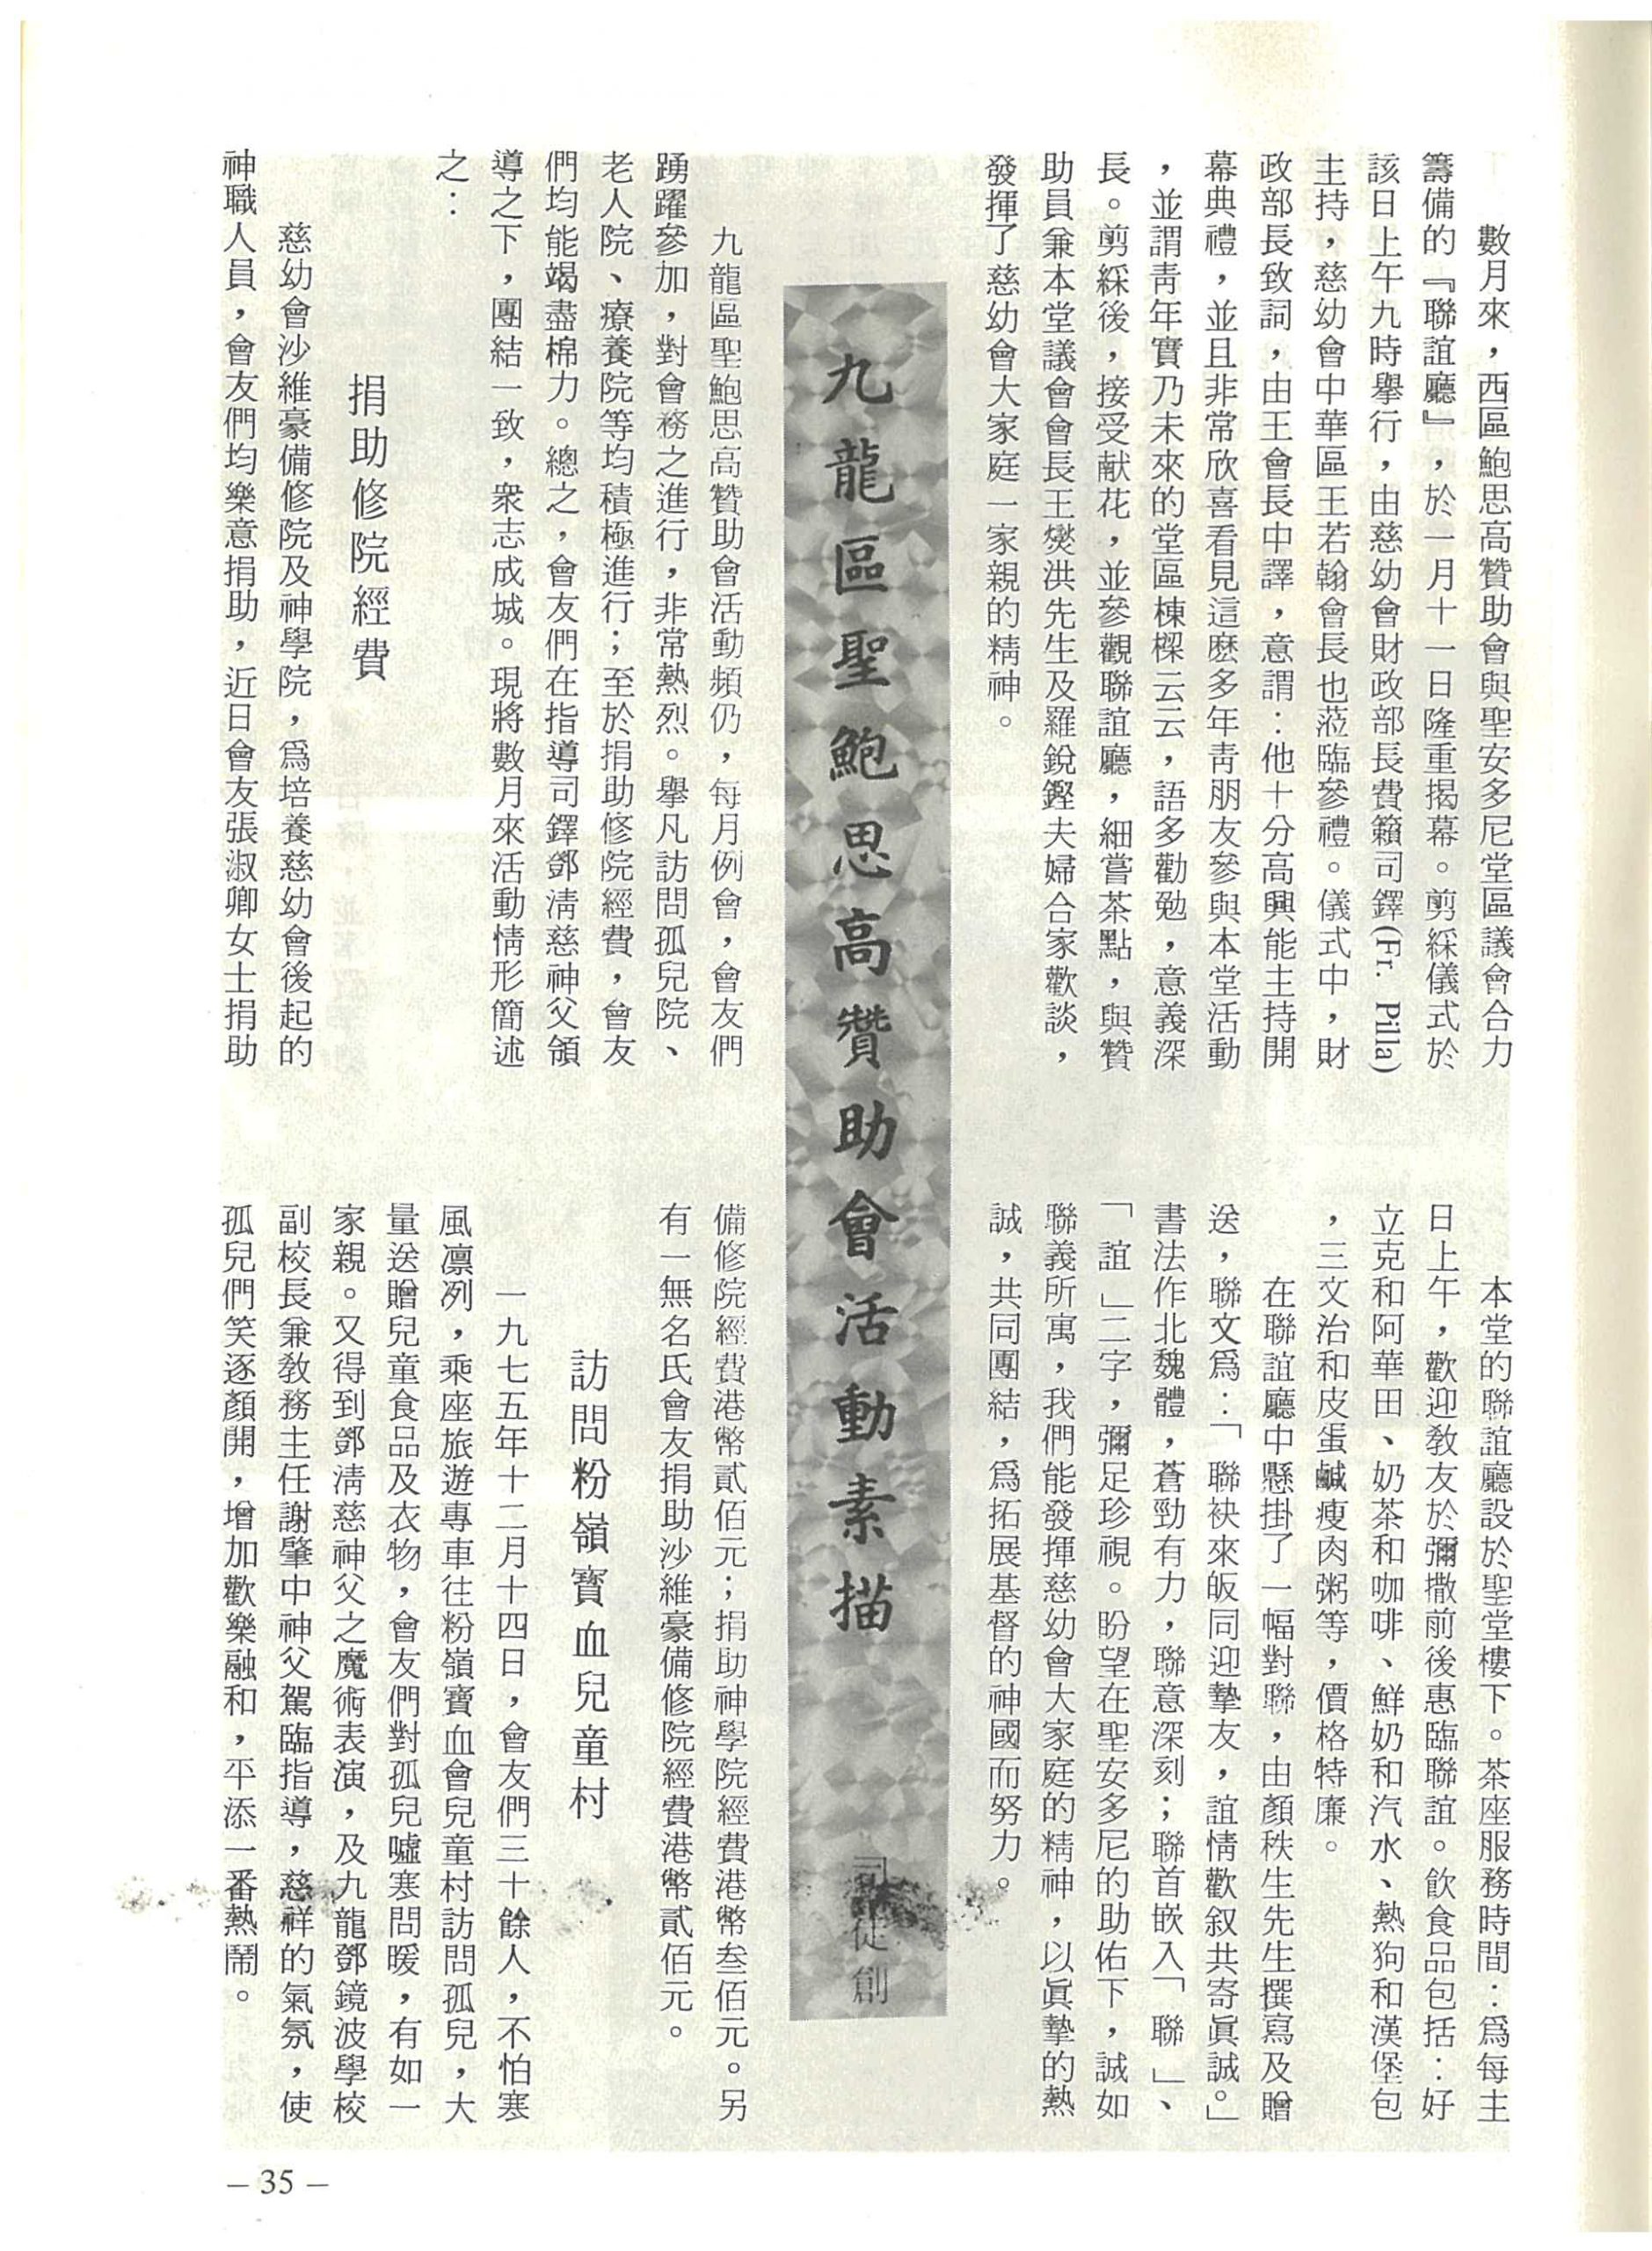 數月來，西區鮑思高贊助會與聖安多尼堂區議會合力
籌備的『聯誼廳』，於一月十一日隆重揭幕。剪綵儀式於
該日上午九時舉行，由慈幼會財政部長費籟司鐸(Fr. Pilla)
主持，慈幼會中華區王若翰會長也蒞臨參禮。儀式中，財
政部長致詞，由王會長中譯，意謂：他十分高興能主持開
幕典禮，並且非常欣喜看見這麼多年青朋友參與本堂活動
，並謂青年實乃未來的堂區棟樑云云，語多勸勉，意義深
長。剪綵後，接受献花，並參觀聯誼廳，細嘗茶點，與贊
助員兼本堂議會會長王爕洪先生及羅銳鏗夫婦合家歡談，
發揮了慈幼會大家庭一家親的精神。
本堂的聯誼廳設於聖堂樓下。茶座服務時間：爲每主
日上午，歡迎敎友於彌撒前後惠臨聯誼。飲食品包括：好
立克和阿華田、奶茶和咖啡、鮮奶和汽水、熱狗和漢堡包
，三文治和皮蛋鹹瘦肉粥等，價格特廉。
在聯誼廳中懸掛了一幅對聯，由顏秩生先生撰寫及贈
送，聯文爲：「聯袂來皈同迎摯友，誼情歡叙共寄眞誠。」
書法作北魏體，蒼勁有力，聯意深刻；聯首嵌入「聯」、
「誼」二字，彌足珍視。盼望在聖安多尼的助佑下，誠如
聯義所寓，我們能發揮慈幼會大家庭的精神，以眞摯的熱
誠，共同團結，爲拓展基督的神國而努力。
九龍區聖鮑思高贊助會活動素描
司徒創
九龍區聖鮑思高贊助會活動頻仍，每月例會，會友們
踴躍參加，對會務之進行，非常熱烈。舉凡訪問孤兒院、
老人院、療養院等均積極進行；至於捐助修院經費，會友
們均能竭盡棉力。總之，會友們在指導司鐸鄧淸慈神父領
導之下，團結一致，衆志成城。現將數月來活動情形簡述
之：
捐助修院經費
慈幼會沙維豪備修院及神學院，爲培養慈幼會後起的
神職人員，會友們均樂意捐助，近日會友張淑卿女士捐助
備修院經費港幣貳佰元；捐助神學院經費港幣叁佰元。另
有一無名氏會友捐助沙維豪備修院經費港幣貳佰元。
訪問粉嶺寳血兒童村
一九七五年十二月十四日，會友們三十餘人，不怕寒
風凛冽，乘座旅遊專車往粉嶺寳血會兒童村訪問孤兒，大
量送贈兒童食品及衣物，會友們對孤兒噓寒問暖，有如一
家親。又得到鄧淸慈神父之魔術表演，及九龍鄧鏡波學校
副校長兼敎務主任謝肇中神父駕臨指導，慈祥的氣氛，使
孤兒們笑逐顏開，增加歡樂融和，平添一番熱鬧。
– 35 –